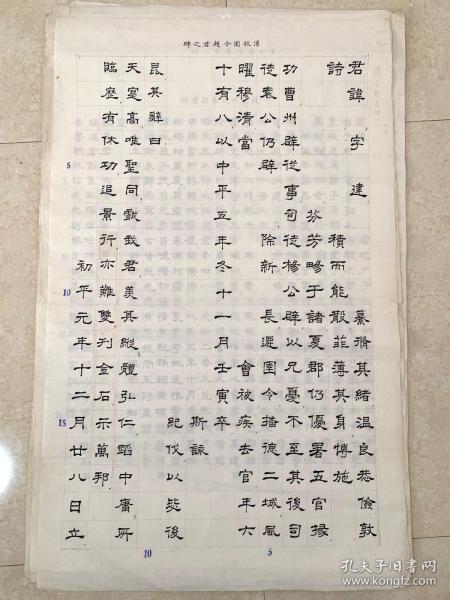 漢故圉令趙君之碑
君諱 字 建 慕脩其緒溫良恭儉敦
詩 積而能散菲薄其身博施
芬芳畼于諸夏郡仍優署五官掾
功曹州辟從事司徒楊公辟以兄憂不至其後司
徒袁公仍辟 除新 長遷圉令播德二城風
曜穆清當 會被疾去官年六
十有八以中平五年冬十一月壬寅卒
斯詠
紀伐以毖後
昆其辭曰
天寔高唯聖同戲我君羨其縱體弘仁蹈中庸所
臨歷有休功追景行亦難雙刊金石示萬邦
初平元年十二月廿八日立
5
10
15
10
5
孔夫子旧书网
www.kongfz.com